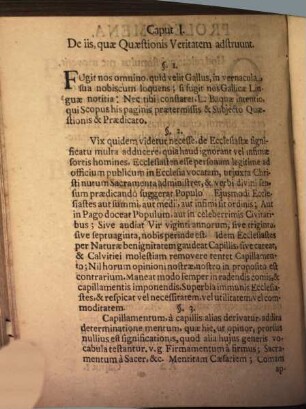 Caput I.
De iis, quæ Quæstionis Veritatem adstruunt.
§ 1.
Fugit nos omnino, quid velit Gallus, in vernacula
sua nobiscum loquens; si fugit nos Gallicæ Lin-
guæ notitia: Nec tibi constaret, L. Bque intentio,
qui Scopus his paginis, prætermissis & Subjecto Quæ-
stionis & Prædicato.
§. 2.
Vix quidem videtur necesse, de Ecclesiastæ signi-
ficatu multa adducere, quia haud ignorant vel infimæ
sortis homines, Ecclesiasten esse personam legitime ad
officium publicum in Ecclesia vocatam, ut juxta Chri-
sti nutum Sacramenta administret, & verbi divini sen-
sum prædicando suggerat Populo. Ejusmodi Ecclesi-
astes aut summi, aut medii, aut infimi sit ordinis; Aut
in Pago doceat Populum, aut in celeberrimis Civitati-
bus; Sive audiat Vir viginti annorum, sive triginta,
sive septuaginta, nobis perinde est. Idem Ecclesiastes
per Naturæ benignitatem gaudeat Capillis, sive careat,
& Calvitiei molestiam removere tentet Capillamen-
to; Nil horum opinioni nostræ nostro in proposito est
contrarium. Maneat modo semper in ædendis comis, &
capillamentis imponendis, Superbia immunis Ecclesia-
stes, & respicat vel necessitatem, vel utilitatem, vel com-
moditatem.
§ 3.
Capillamentum à capillis alias derivatur, addita
determinatione mentum, quæ hic, ut opinor, prorsus
nullius est significationis, quod alia hujus generis vo-
cabula testantur, v. g. Firmamentum à firmus; Sacra-
mentum à Sacer, &c. Mentitam Cæsariem; Comam
ap-